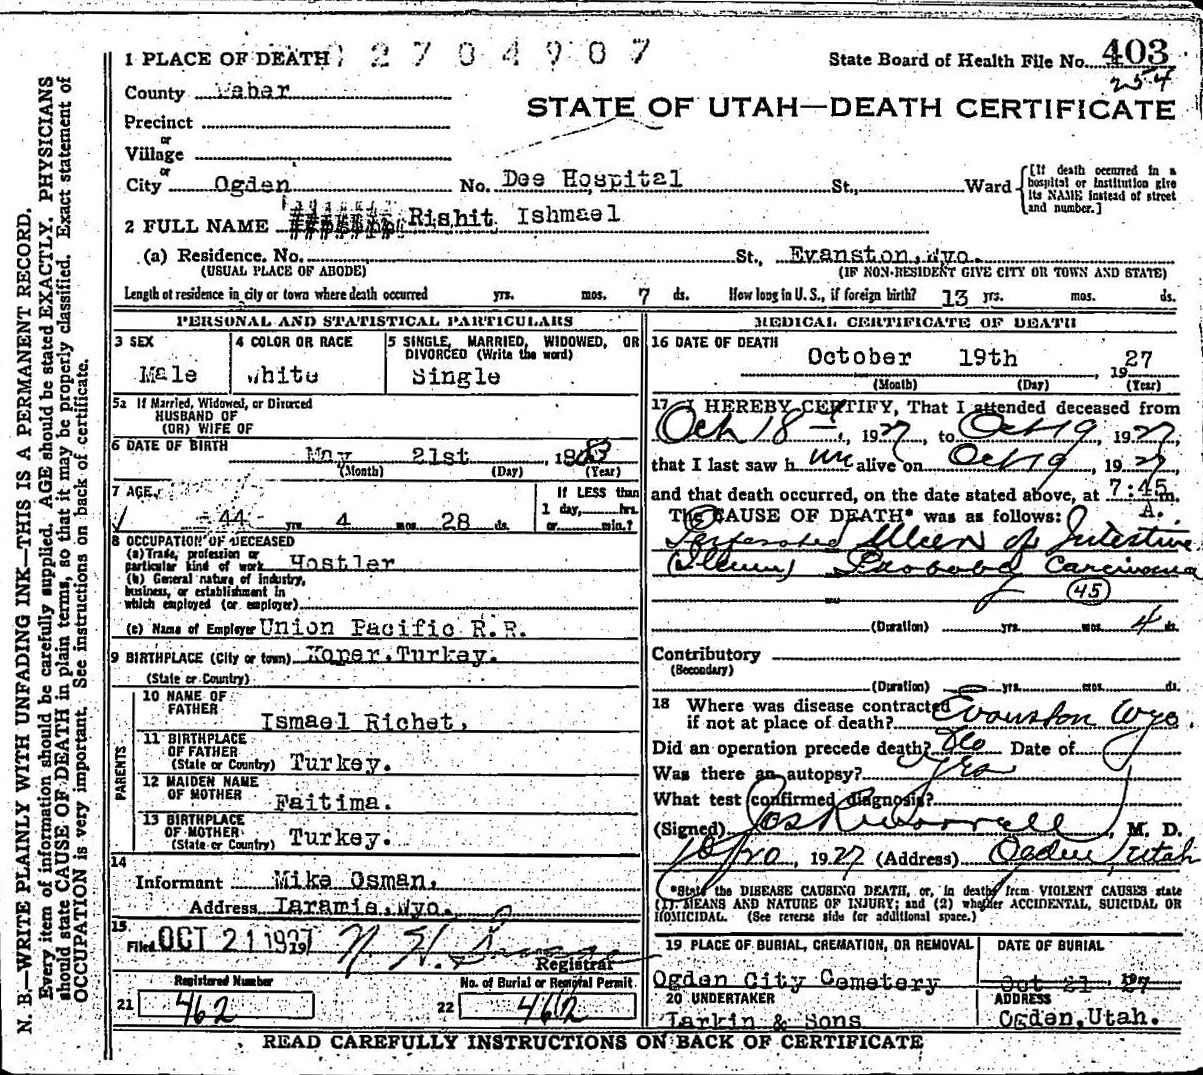 1 PLACE OF DEATH 2704907
State Board of Health File No. 403
254
County Weber
STATE OF UTAH—DEATH CERTIFICATE
Precinct
or
Village
or
City Ogden No. Dee Hospital St., Ward {[If death occurred in a hospital or institution give its NAME instead of street and number.]
2 FULL NAME Rishit Ishmael
(a) Residence. No. St., Evanston, Wyo.
(USUAL PLACE OF ABODE) (IF NON-RESIDENT GIVE CITY OR TOWN AND STATE)
Length of residence in city or town where death occurred yrs. mos. 7 ds. How long in U. S., if foreign birth? 13 yrs. mos. ds.
PERSONAL AND STATISTICAL PARTICULARS
3 SEX
Male
4 COLOR OR RACE
White
5 SINGLE, MARRIED, WIDOWED, OR
DIVORCED (Write the word)
Single
5a If Married, Widowed, or Divorced
HUSBAND OF
(OR) WIFE OF
6 DATE OF BIRTH
May 21st, 18
(Month) (Day) (Year)
7 AGE
44 yrs 4 mos 28 ds.
If LESS than
1 day, hrs.
or min.?
8 OCCUPATION OF DECEASED
(a) Trade, profession or
particular kind of work Hostler
(b) General nature of industry,
business, or establishment in
which employed (or employer)
(c) Name of Employer Union Pacific R.R.
9 BIRTHPLACE (City or town) Koper, Turkey.
(State or Country)
PARENTS
10 NAME OF
FATHER
Ismael Richet,
11 BIRTHPLACE
OF FATHER
(State or Country) Turkey.
12 MAIDEN NAME
OF MOTHER Faitima.
13 BIRTHPLACE
OF MOTHER
(State or Country) Turkey.
14
Informant Mike Osman,
Address Laramie, Wyo.
15
Filed OCT 21 1927 19 N. H.
Registrar
Registered Number
21 462
No. of Burial or Removal Permit
22 462
MEDICAL CERTIFICATE OF DEATH
16 DATE OF DEATH
October 19th 1927
(Month) (Day) (Year)
17 I HEREBY CERTIFY, That I attended deceased from
Oct 18, 1927, to Oct 19, 1927,
that I last saw him alive on Oct 19, 1927
and that death occurred, on the date stated above, at 7:45 m.
A.
The CAUSE OF DEATH* was as follows:
Perforated Ulcer of Intestine
(Ileum) Probably Carcinoma
45
(Duration) yrs. mos. 4 ds.
Contributory
(Secondary)
(Duration) yrs. mos. ds.
18 Where was disease contracted
if not at place of death? Evanston Wyo.
Did an operation precede death? No Date of
Was there an autopsy? Yes
What test confirmed diagnosis?
(Signed) Jos R Morrell, M. D.
10/20, 1927 (Address) Ogden, Utah
*State the DISEASE CAUSING DEATH, or, in deaths from VIOLENT CAUSES state
(1) MEANS AND NATURE OF INJURY; and (2) whether ACCIDENTAL, SUICIDAL OR
HOMICIDAL. (See reverse side for additional space.)
19 PLACE OF BURIAL, CREMATION, OR REMOVAL
Ogden City Cemetery
DATE OF BURIAL
Oct 21, 1927
20 UNDERTAKER
Larkin & Sons
ADDRESS
Ogden, Utah.
READ CAREFULLY INSTRUCTIONS ON BACK OF CERTIFICATE
N. B.—WRITE PLAINLY WITH UNFADING INK—THIS IS A PERMANENT RECORD.
Every item of information should be carefully supplied. AGE should be stated EXACTLY. PHYSICIANS
should state CAUSE OF DEATH in plain terms, so that it may be properly classified. Exact statement of
OCCUPATION is very important. See instructions on back of certificate.